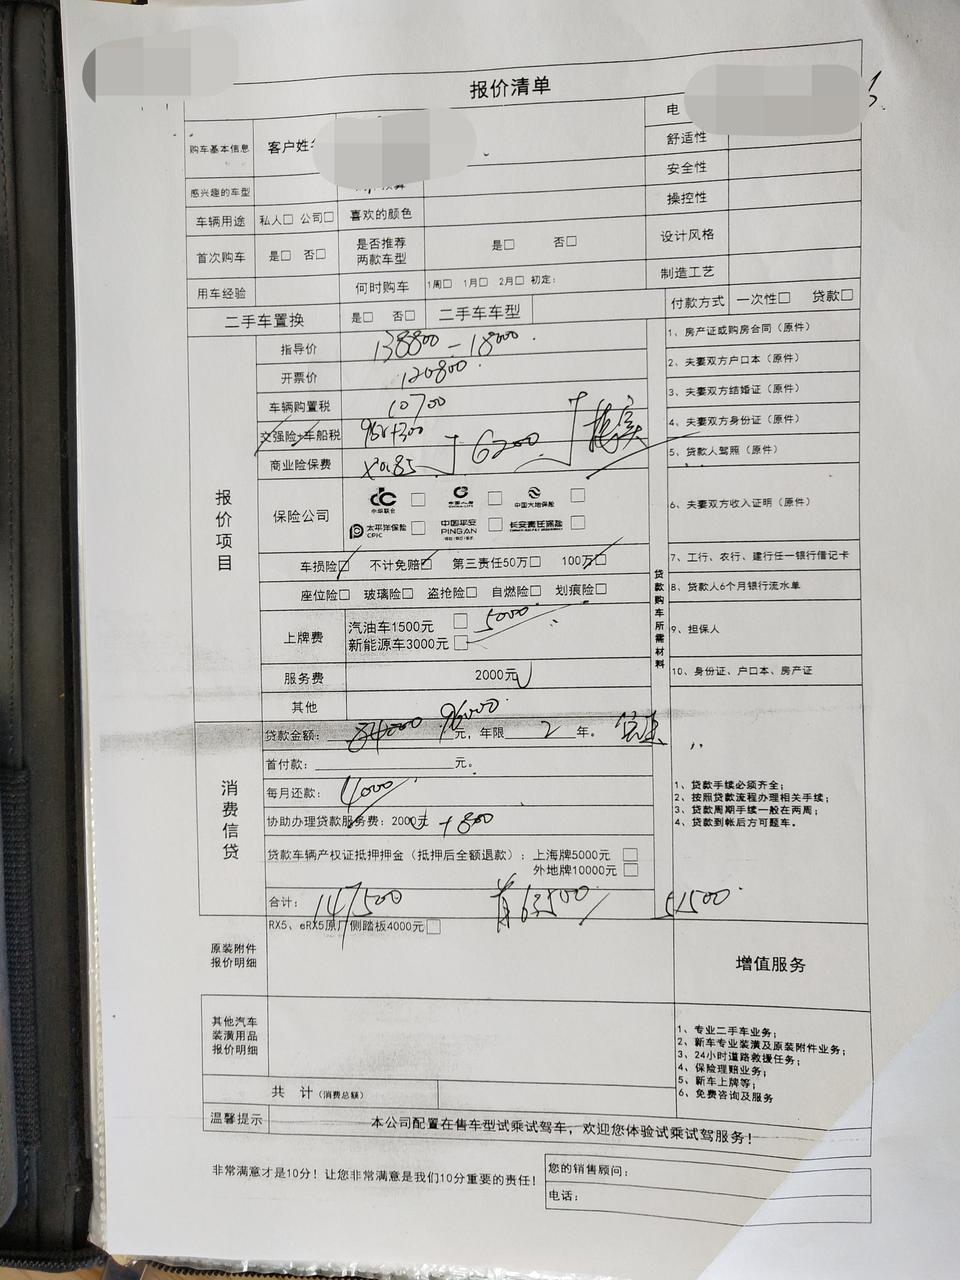 报价清单
电
购车基本信息 客户姓名 舒适性
安全性
感兴趣的车型 预算 操控性
车辆用途 私人□ 公司□ 喜欢的颜色
首次购车 是□ 否□ 是否推荐两款车型 是□ 否□ 设计风格
用车经验 何时购车 1周□ 1月□ 2月□ 初定: 制造工艺
二手车置换 是□ 否□ 二手车车型 付款方式 一次性□ 贷款□
报价项目
指导价 138800-18000
开票价 120800
车辆购置税 10700
交强险+车船税 950+300
商业险保费 X0.85 6200
保险公司
中华联合 □ □ 中国大地保险 □
太平洋保险 CPIC □ 中国平安 PINGAN □ 长安责任保险 □
车损险□ 不计免赔□ 第三责任50万□ 100万□
座位险□ 玻璃险□ 盗抢险□ 自燃险□ 划痕险□
上牌费 汽油车1500元 □ 5000
新能源车3000元 □
服务费 2000元
其他
贷款购车所需材料
1、房产证或购房合同（原件）
2、夫妻双方户口本（原件）
3、夫妻双方结婚证（原件）
4、夫妻双方身份证（原件）
5、贷款人驾照（原件）
6、夫妻双方收入证明（原件）
7、工行、农行、建行任一银行借记卡
8、贷款人6个月银行流水单
9、担保人
10、身份证、户口本、房产证
消费信贷
贷款金额: 84000 96000 元，年限 2 年。
首付款: 元。
每月还款: 4000
协助办理贷款服务费: 2000元 +800
贷款车辆产权证抵押押金（抵押后全额退款）: 上海牌5000元 □
外地牌10000元 □
合计: 147500 首63500 51500
1、贷款手续必须齐全;
2、按照贷款流程办理相关手续;
3、贷款周期手续一般在两周;
4、贷款到帐后方可题车。
原装附件报价明细 RX5、eRX5原厂侧踏板4000元□
增值服务
其他汽车装潢用品报价明细
1、专业二手车业务;
2、新车专业装潢及原装附件业务;
3、24小时道路救援任务;
4、保险理赔业务;
5、新车上牌等;
6、免费咨询及服务
共 计（消费总额）
温馨提示 本公司配置在售车型试乘试驾车，欢迎您体验试乘试驾服务!
非常满意才是10分! 让您非常满意是我们10分重要的责任!
您的销售顾问:
电话: